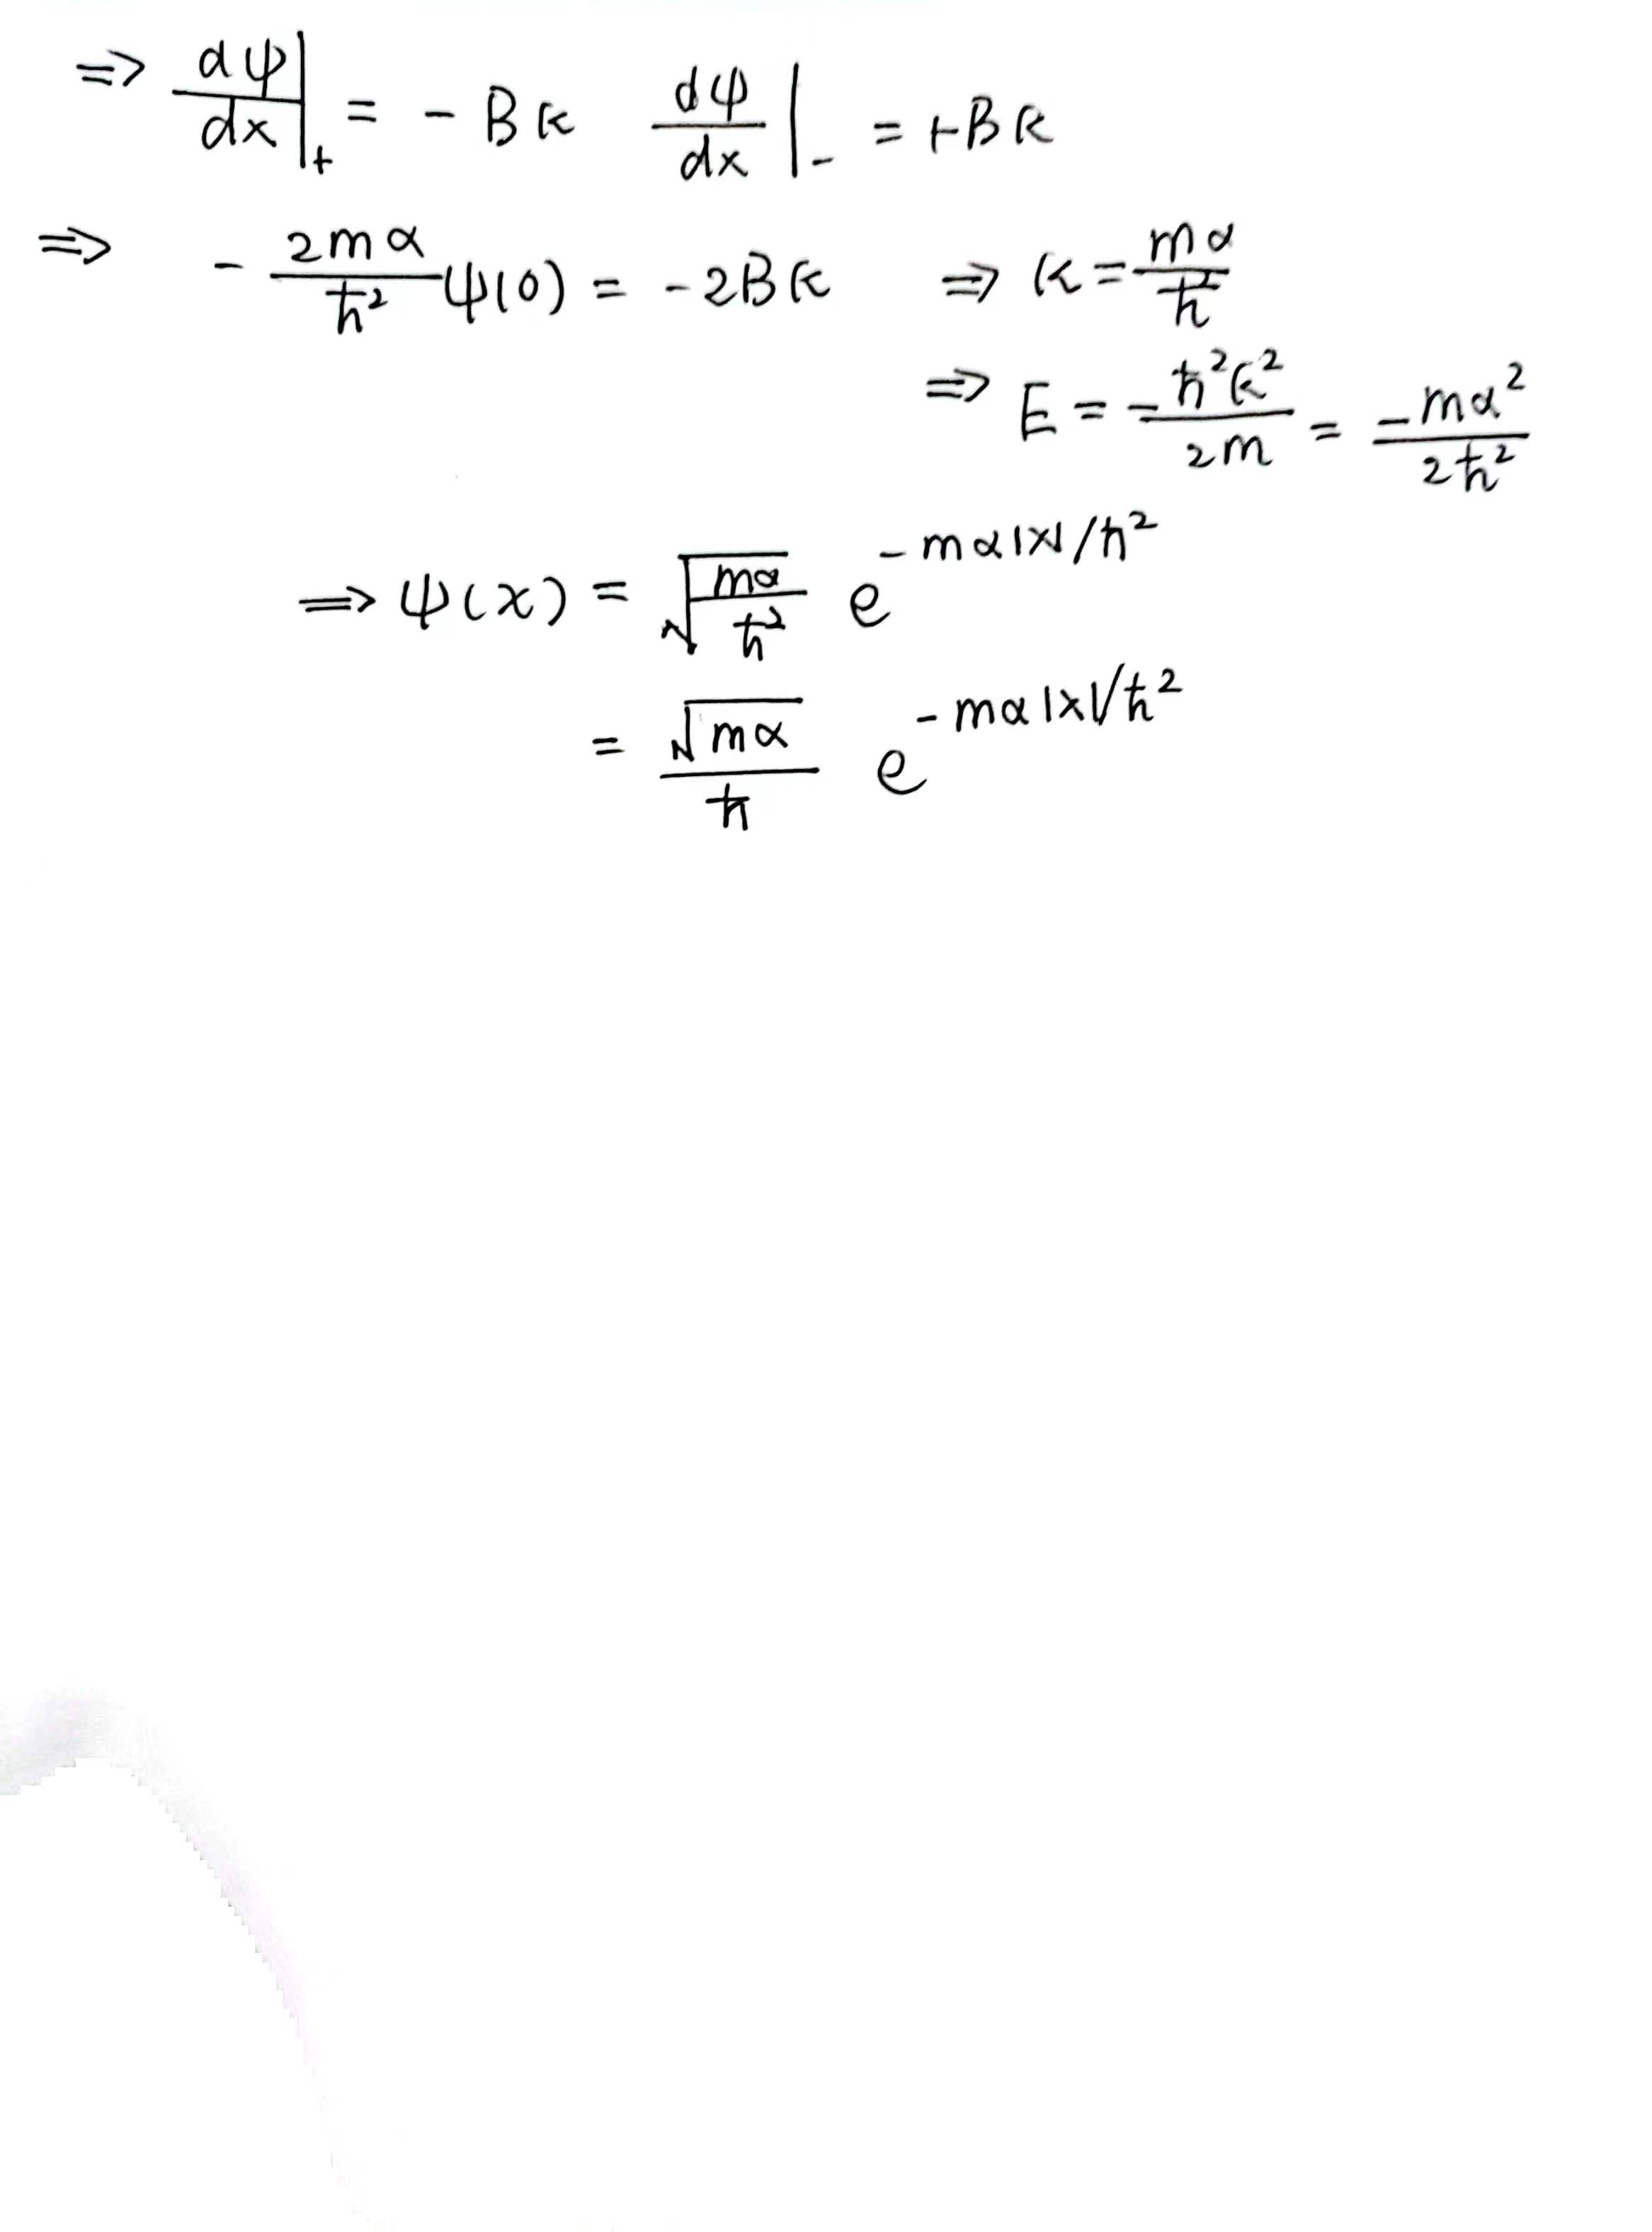 ⇒ dψ/dx|₊ = - Bκ dψ/dx|₋ = +Bκ
⇒ - 2mα/ħ² ψ(0) = -2Bκ ⇒ κ = mα/ħ²
⇒ E = -ħ²κ²/2m = -mα²/2ħ²
⇒ ψ(x) = √(mα/ħ²) e^(-mα|x|/ħ²)
= √(mα)/ħ e^(-mα|x|/ħ²)